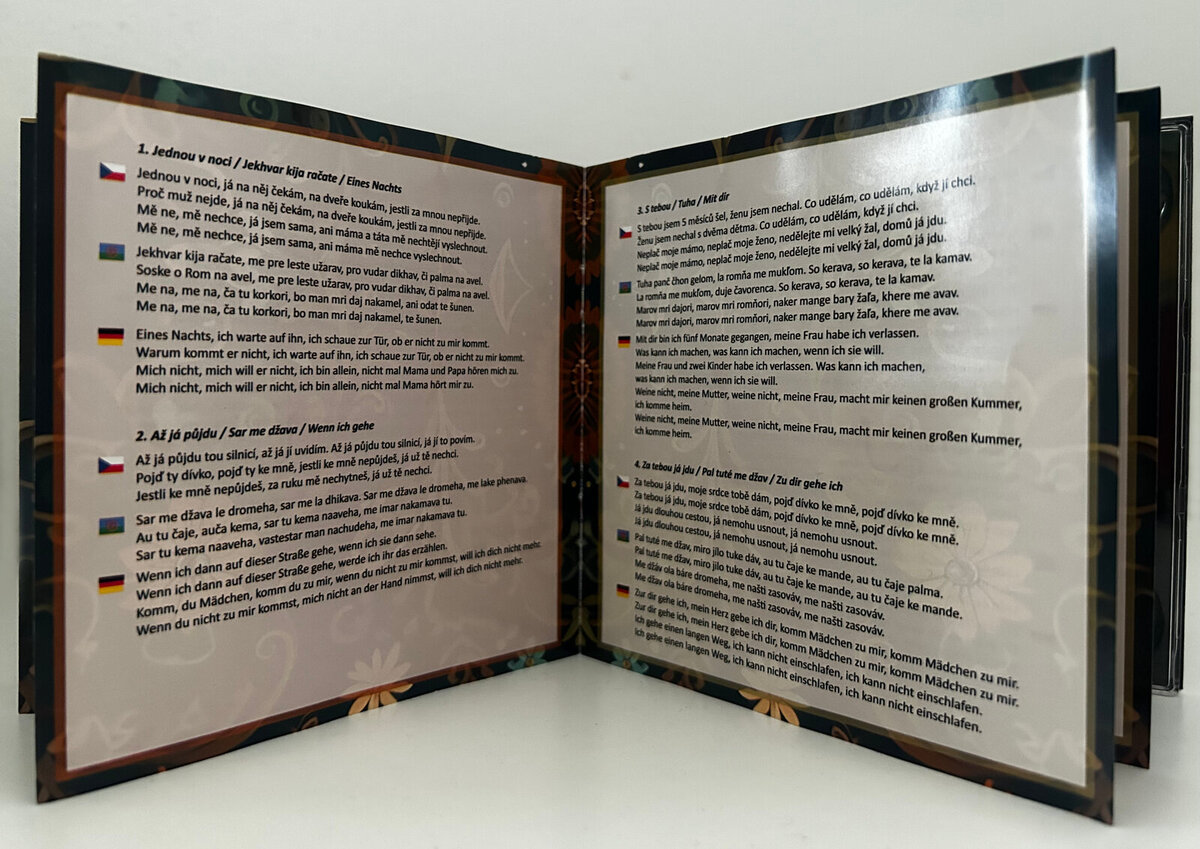 1. Jednou v noci / Jekhvar kija račate / Eines Nachts
Jednou v noci, já na něj čekám, na dveře koukám, jestli za mnou nepřijde.
Proč muž nejde, já na něj čekám, na dveře koukám, jestli za mnou nepřijde.
Mě ne, mě nechce, já jsem sama, ani máma a táta mě nechtějí vyslechnout.
Mě ne, mě nechce, já jsem sama, ani máma mě nechce vyslechnout.
Jekhvar kija račate, me pre leste užarav, pro vudar dikhav, či palma na avel.
Soske o Rom na avel, me pre leste užarav, pro vudar dikhav, či palma na avel.
Me na, me na, ča tu korkori, bo man mri daj nakamel, ani odat te šunen.
Me na, me na, ča tu korkori, bo man mri daj nakamel, te šunen.
Eines Nachts, ich warte auf ihn, ich schaue zur Tür, ob er nicht zu mir kommt.
Warum kommt er nicht, ich warte auf ihn, ich schaue zur Tür, ob er nicht zu mir kommt.
Mich nicht, mich will er nicht, ich bin allein, nicht mal Mama und Papa hören mich zu.
Mich nicht, mich will er nicht, ich bin allein, nicht mal Mama hört mir zu.
2. Až já půjdu / Sar me džava / Wenn ich gehe
Až já půjdu tou silnicí, až já jí uvidím. Až já půjdu tou silnicí, já jí to povím.
Pojď ty dívko, pojď ty ke mně, jestli ke mně nepůjdeš, já už tě nechci.
Jestli ke mně nepůjdeš, za ruku mě nechytneš, já už tě nechci.
Sar me džava le dromeha, sar me la dhikava. Sar me džava le dromeha, me lake phenava.
Au tu čaje, auča kema, sar tu kema naaveha, me imar nakamava tu.
Sar tu kema naaveha, vastestar man nachudeha, me imar nakamava tu.
Wenn ich dann auf dieser Straße gehe, wenn ich sie dann sehe.
Wenn ich dann auf dieser Straße gehe, werde ich ihr das erzählen.
Komm, du Mädchen, komm du zu mir, wenn du nicht zu mir kommst, will ich dich nicht mehr.
Wenn du nicht zu mir kommst, mich nicht an der Hand nimmst, will ich dich nicht mehr.
3. S tebou / Tuha / Mit dir
S tebou jsem 5 měsíců šel, ženu jsem nechal. Co udělám, co udělám, když jí chci.
Ženu jsem nechal s dvěma dětma. Co udělám, co udělám, když jí chci.
Neplač moje mámo, neplač moje ženo, nedělejte mi velký žal, domů já jdu.
Neplač moje mámo, neplač moje ženo, nedělejte mi velký žal, domů já jdu.
Tuha panč čhon gelom, la romňa me mukľom. So kerava, so kerava, te la kamav.
La romňa me mukľom, duje čavorenca. So kerava, so kerava, te la kamav.
Marov mri dajori, marov mri romňori, naker mange bary žaľa, khere me avav.
Marov mri dajori, marov mri romňori, naker mange bary žaľa, khere me avav.
Mit dir bin ich fünf Monate gegangen, meine Frau habe ich verlassen.
Was kann ich machen, was kann ich machen, wenn ich sie will.
Meine Frau und zwei Kinder habe ich verlassen. Was kann ich machen,
was kann ich machen, wenn ich sie will.
Weine nicht, meine Mutter, weine nicht, meine Frau, macht mir keinen großen Kummer,
ich komme heim.
Weine nicht, meine Mutter, weine nicht, meine Frau, macht mir keinen großen Kummer,
ich komme heim.
4. Za tebou já jdu / Pal tuté me džav / Zu dir gehe ich
Za tebou já jdu, moje srdce tobě dám, pojď dívko ke mně, pojď dívko ke mně.
Za tebou já jdu, moje srdce tobě dám, pojď dívko ke mně, pojď dívko ke mně.
Já jdu dlouhou cestou, já nemohu usnout, já nemohu usnout.
Já jdu dlouhou cestou, já nemohu usnout, já nemohu usnout.
Pal tuté me džav, miro jilo tuke dáv, au tu čaje ke mande, au tu čaje palma.
Pal tuté me džav, miro jilo tuke dáv, au tu čaje ke mande, au tu čaje ke mande.
Me džáv ola báre dromeha, me našti zasováv, me našti zasováv.
Me džáv ola báre dromeha, me našti zasováv, me našti zasováv.
Zur dir gehe ich, mein Herz gebe ich dir, komm Mädchen zu mir, komm Mädchen zu mir.
Zur dir gehe ich, mein Herz gebe ich dir, komm Mädchen zu mir, komm Mädchen zu mir.
ich gehe einen langen Weg, ich kann nicht einschlafen, ich kann nicht einschlafen.
ich gehe einen langen Weg, ich kann nicht einschlafen, ich kann nicht einschlafen.